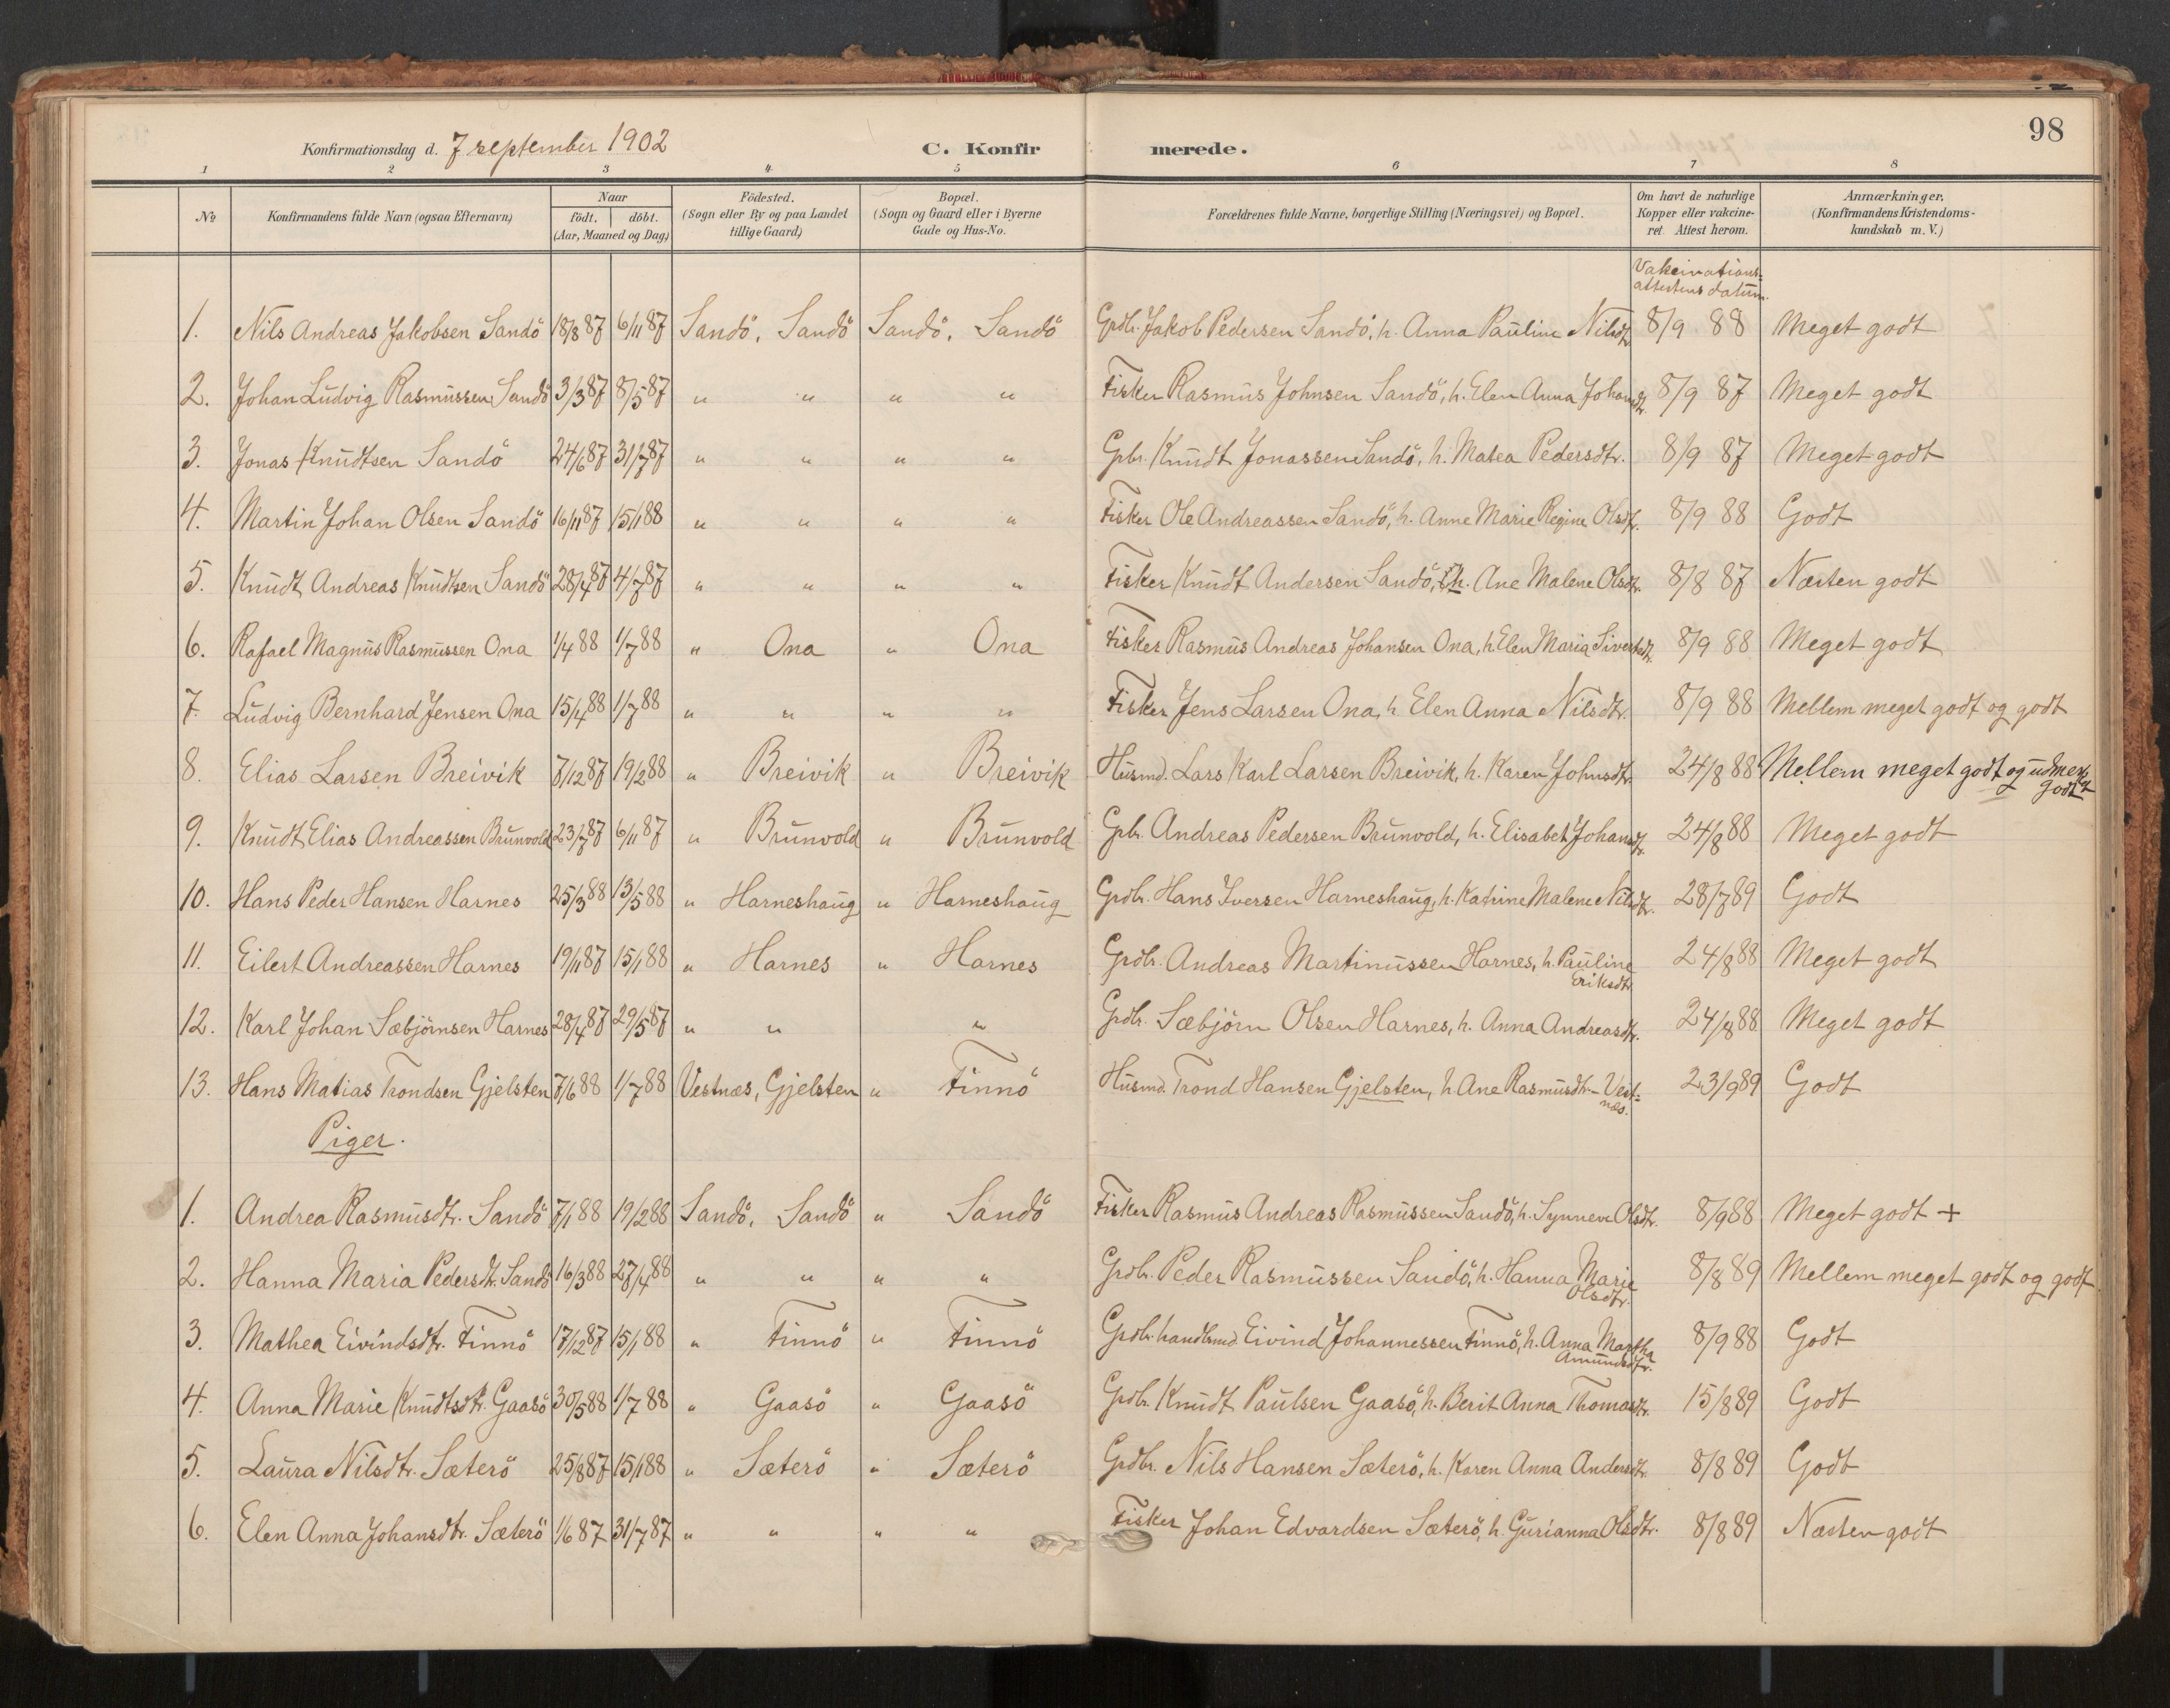 98
Konfirmationsdag d. 7 september 1902 C. Konfirmerede.
1 2 3 4 5 6 7 8
No Konfirmandens fulde Navn (ogsaa Efternavn) Naar födt. döbt. (Aar, Maaned og Dag) Födested. (Sogn eller By og paa Landet tillige Gaard) Bopæl. (Sogn og Gaard eller i Byerne Gade og Hus-No. Forældrenes fulde Navne, borgerlige Stilling (Næringsvei) og Bopæl. Om havt de naturlige Kopper eller vakcineret. Attest herom. Anmærkninger. (Konfirmandens Kristendomskundskab m. V.)
Vakcinations=
attestens datum.
1. Nils Andreas Jakobsen Sandö 18/8 87 6/11 87 Sandö, Sandö Sandö, Sandö Grdbr. Jakob Pedersen Sandö, h. Anna Pauline Nilsdtr. 8/9 88 Meget godt
2. Johan Ludvig Rasmussen Sandö 3/3 87 8/5 87 " " " " Fisker Rasmus Johnsen Sandö, h. Elen Anna Johansdtr. 8/9 87 Meget godt
3. Jonas Knudtsen Sandö 24/6 87 31/7 87 " " " " Grbr. Knudt Jonassen Sandö, h. Matea Pedersdtr. 8/9 87 Meget godt
4. Martin Johan Olsen Sandö 16/11 87 15/1 88 " " " " Fisker Ole Andreassen Sandö, h. Anne Marie Regine Olsdt. 8/9 88 Godt
5. Knudt Andreas Knudtsen Sandö 28/4 87 4/7 87 " " " " Fisker Knudt Andersen Sandö, h. Ane Malene Olsdtr. 8/8 87 Næsten godt
6. Rafael Magnus Rasmussen Ona 1/4 88 1/7 88 " Ona " Ona Fisker Rasmus Andreas Johansen Ona, h. Elen Maria Sivertsdtr. 8/9 88 Meget godt
7. Ludvig Bernhard Jensen Ona 15/4 88 1/7 88 " " " " Fisker Jens Larsen Ona, h Elen Anna Nilsdtr. 8/9 88 Mellem meget godt og godt
8. Elias Larsen Breivik 7/12 87 19/2 88 " Breivik " Breivik Husmd. Lars Karl Larsen Breivik, h. Karen Johnsdtr. 24/8 88 Mellem meget godt og udmerket godt
9. Knudt Elias Andreassen Brunvold 23/7 87 6/11 87 " Brunvold " Brunvold Gbr. Andreas Pedersen Brunvold, h. Elisabet Johansdtr. 24/8 88 Meget godt
10. Hans Peder Hansen Harnes 25/3 88 13/5 88 " Harneshaug " Harneshaug Grdbr. Hans Iversen Harneshaug, h. Katrine Malene Nilsdtr. 28/7 89 Godt
11. Eilert Andreassen Harnes 19/11 87 15/1 88 " Harnes " Harnes Grdbr. Andreas Martinussen Harnes, h. Pauline Eriksdtr. 24/8 88 Meget godt
12. Karl Johan Sæbjörnsen Harnes 28/4 87 29/5 87 " " " Grdbr. Sæbjörn Olsen Harnes, h. Anna Andreasdtr. 24/8 88 Meget godt
13. Hans Matias Trondsen Gjelsten 7/6 88 1/7 88 Vestnæs, Gjelsten " Finnö Husmd. Trond Hansen Gjelsten, h. Ane Rasmusdtr - Vest=næs. 23/9 89 Godt
Piger.
1. Andrea Rasmusdtr. Sandö 7/1 88 19/2 88 Sandö, Sandö " Sandö Fisker Rasmus Andreas Rasmussen Sandö, h. Synneve Olsdtr. 8/9 88 Meget godt +
2. Hanna Maria Pedersdtr. Sandö 16/3 88 27/4 88 " " " " Grdbr. Peder Rasmussen Sandö, h. Hanna Marie Olsdtr. 8/8 89 Mellem meget godt og godt
3. Mathea Eivindsdtr. Finnö 17/12 87 15/1 88 " Finnö " Finnö Grdbr. handlsmd. Eivind Johannessen Finnö, h. Anna Martha Amundsdtr. 8/9 88 Godt
4. Anna Marie Knudtsdtr. Gaasö 30/5 88 1/7 88 " Gaasö " Gaasö Grdbr. Knudt Paulsen Gaasö, h. Berit Anna Thomasdtr. 15/8 89 Godt
5. Laura Nilsdtr. Sæterö 25/8 87 15/1 88 " Sæterö " Sæterö Grdbr. Nils Hansen Sæterö, h. Karen Anna Andersdtr. 8/8 89 Godt
6. Elen Anna Johansdtr. Sæterö 1/6 87 31/7 87 " " " " Fisker Johan Edvardsen Sæterö, h. Gurianna Olsdtr. 8/8 89 Næsten godt